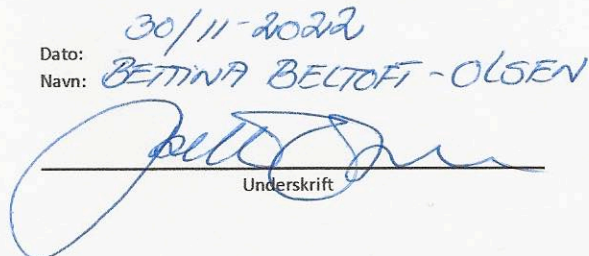 30/11-2022
Dato:
Navn: BETTINA BELTOFT-OLSEN
Underskrift